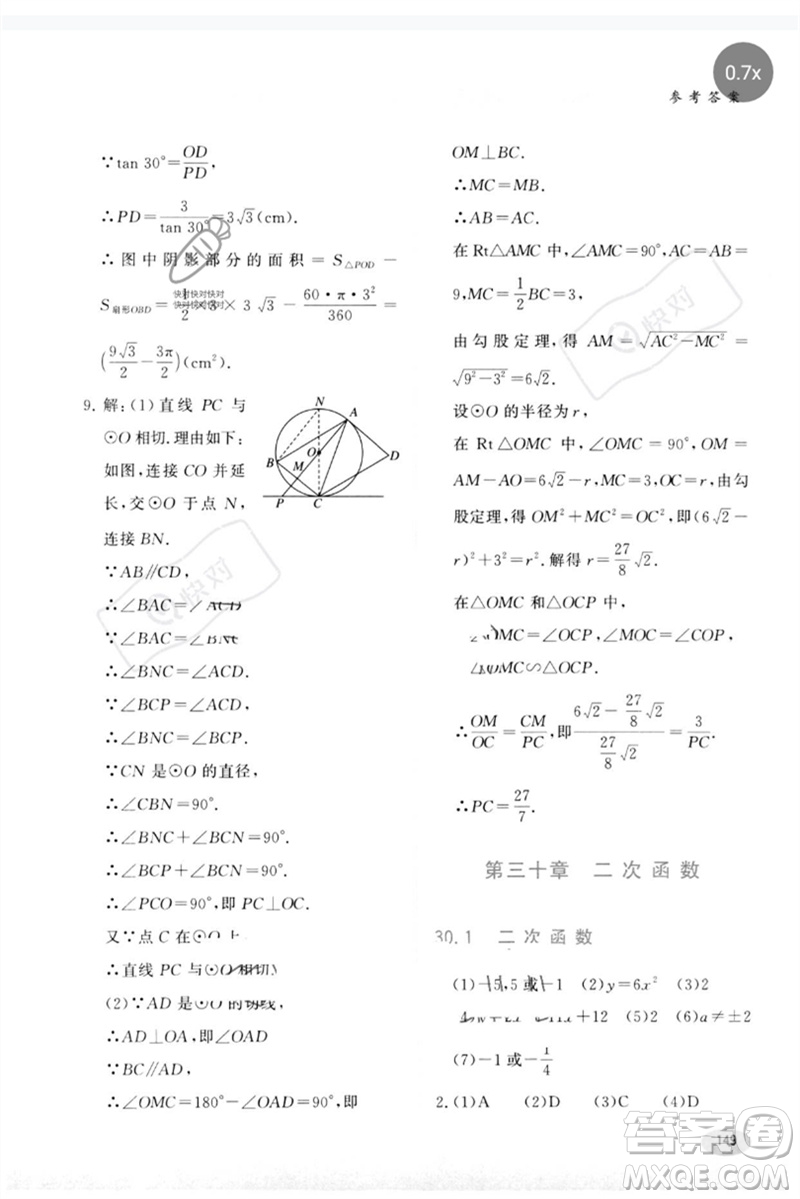 0.7x
参考答案
∵tan 30°=OD/PD,
∴PD=3/tan 30°=3√3(cm).
∴图中阴影部分的面积=S△POD-
S扇形OBD=1/2×3×3√3-60·π·3²/360
(9√3/2-3π/2)(cm²).
9.解:(1)直线 PC 与
⊙O 相切.理由如下:
如图,连接 CO 并延
长,交⊙O 于点 N,
连接 BN.
∵AB∥CD,
∴∠BAC=∠ACD
∵∠BAC=∠BNC
∴∠BNC=∠ACD.
∵∠BCP=∠ACD,
∴∠BNC=∠BCP.
∵CN 是⊙O 的直径,
∴∠CBN=90°.
∴∠BNC+∠BCN=90°.
∴∠BCP+∠BCN=90°.
∴∠PCO=90°,即 PC⊥OC.
又∵点 C 在⊙O 上
∴直线 PC 与⊙O 相切.
(2)∵AD 是⊙O 的切线,
∴AD⊥OA,即∠OAD
∵BC∥AD,
∴∠OMC=180°-∠OAD=90°,即
N
A
B
M
O
D
P
C
OM⊥BC.
∴MC=MB.
∴AB=AC.
在 Rt△AMC 中,∠AMC=90°,AC=AB=
9,MC=1/2BC=3,
由勾股定理,得 AM=√(AC²-MC²)=
√(9²-3²)=6√2.
设⊙O 的半径为 r,
在 Rt△OMC 中,∠OMC=90°,OM=
AM-AO=6√2-r,MC=3,OC=r,由勾
股定理,得 OM²+MC²=OC²,即(6√2-
r)²+3²=r².解得 r=27/8√2.
在△OMC 和△OCP 中,
∠OMC=∠OCP,∠MOC=∠COP,
△OMC∽△OCP.
∴OM/OC=CM/PC,即(6√2-27/8√2)/(27/8√2)=3/PC.
∴PC=27/7.
第三十章 二次函数
30.1 二次函数
(1) 5 或-1 (2)y=6x² (3)2
+12 (5)2 (6)a≠±2
(7)-1 或-1/4
2.(1)A (2)D (3)C (4)D
143
快对
快对
答案圈
MXQE.COM